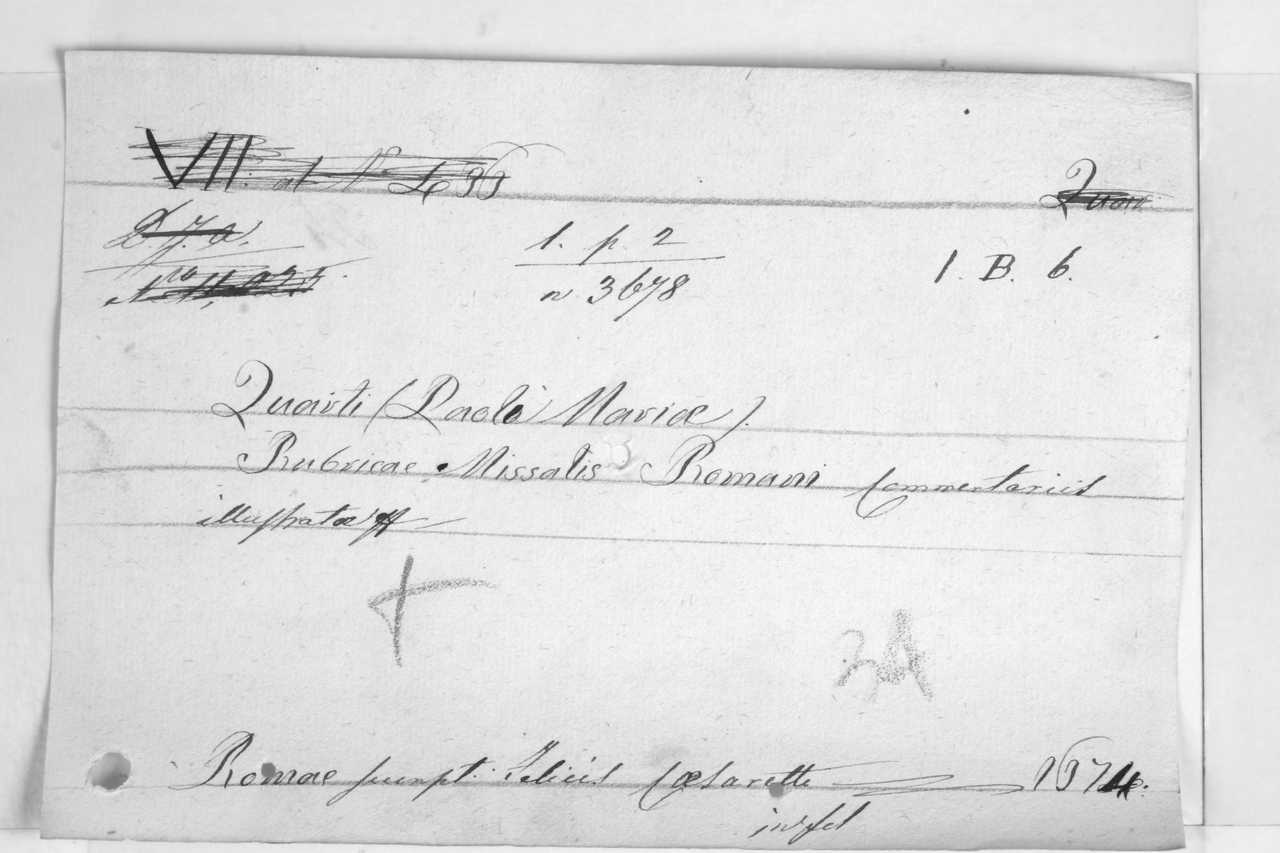 VII.
1. p. 2
n. 3678
1. B. 6.
Quarti (Paoli Mariæ).
Rubricae Missalis Romani Commentariis
illustratæ
Romae sumpt. Felicis Cæsaretti 1674.
in fol